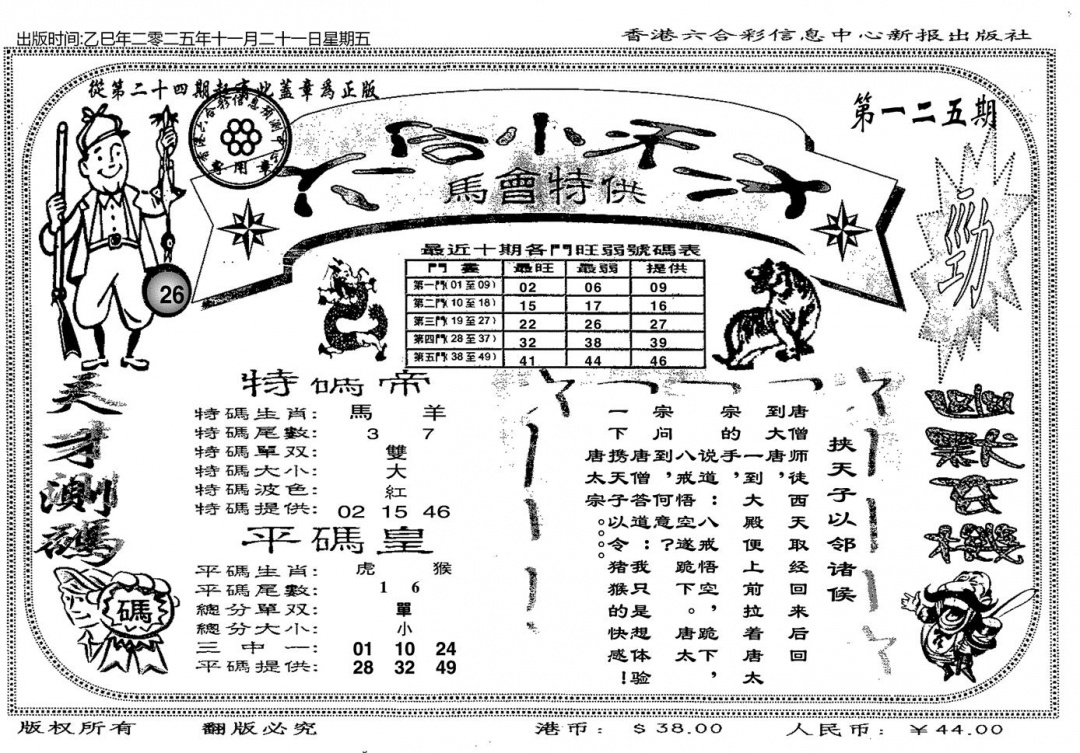 出版时间:乙巳年二零二五年十一月二十一日星期五
香港六合彩信息中心新报出版社
從第二十四期起有此蓋章爲正版
第一二五期
專用章
馬會特供
勁
26
最近十期各門旺弱號碼表
門畫 最旺 最弱 提供
第一門(01至09) 02 06 09
第二門(10至18) 15 17 16
第三門(19至27) 22 26 27
第四門(28至37) 32 38 39
第五門(38至49) 41 44 46
天才测碼
特碼帝
特碼生肖: 馬 羊
特碼尾數: 3 7
特碼單双: 雙
特碼大小: 大
特碼波色: 紅
特碼提供: 02 15 46
平碼皇
平碼生肖: 虎 猴
平碼尾數: 1 6
總分單双: 單
總分大小: 小
三中一: 01 10 24
平碼提供: 28 32 49
碼
挟天子以邻诸候
唐僧师徒西天取经回来后回
到大唐,一到大殿便上前拉着唐太
宗的手,说道:八戒悟空,跪下,
八戒,悟空遂跪下。唐太
宗问到唐僧,何意?
唐僧答道:我只是想体验
一下携天子以令猪猴的快感!
唐太宗。。。
玄機
版权所有
翻版必究
港币: $38.00
人民币: ￥44.00